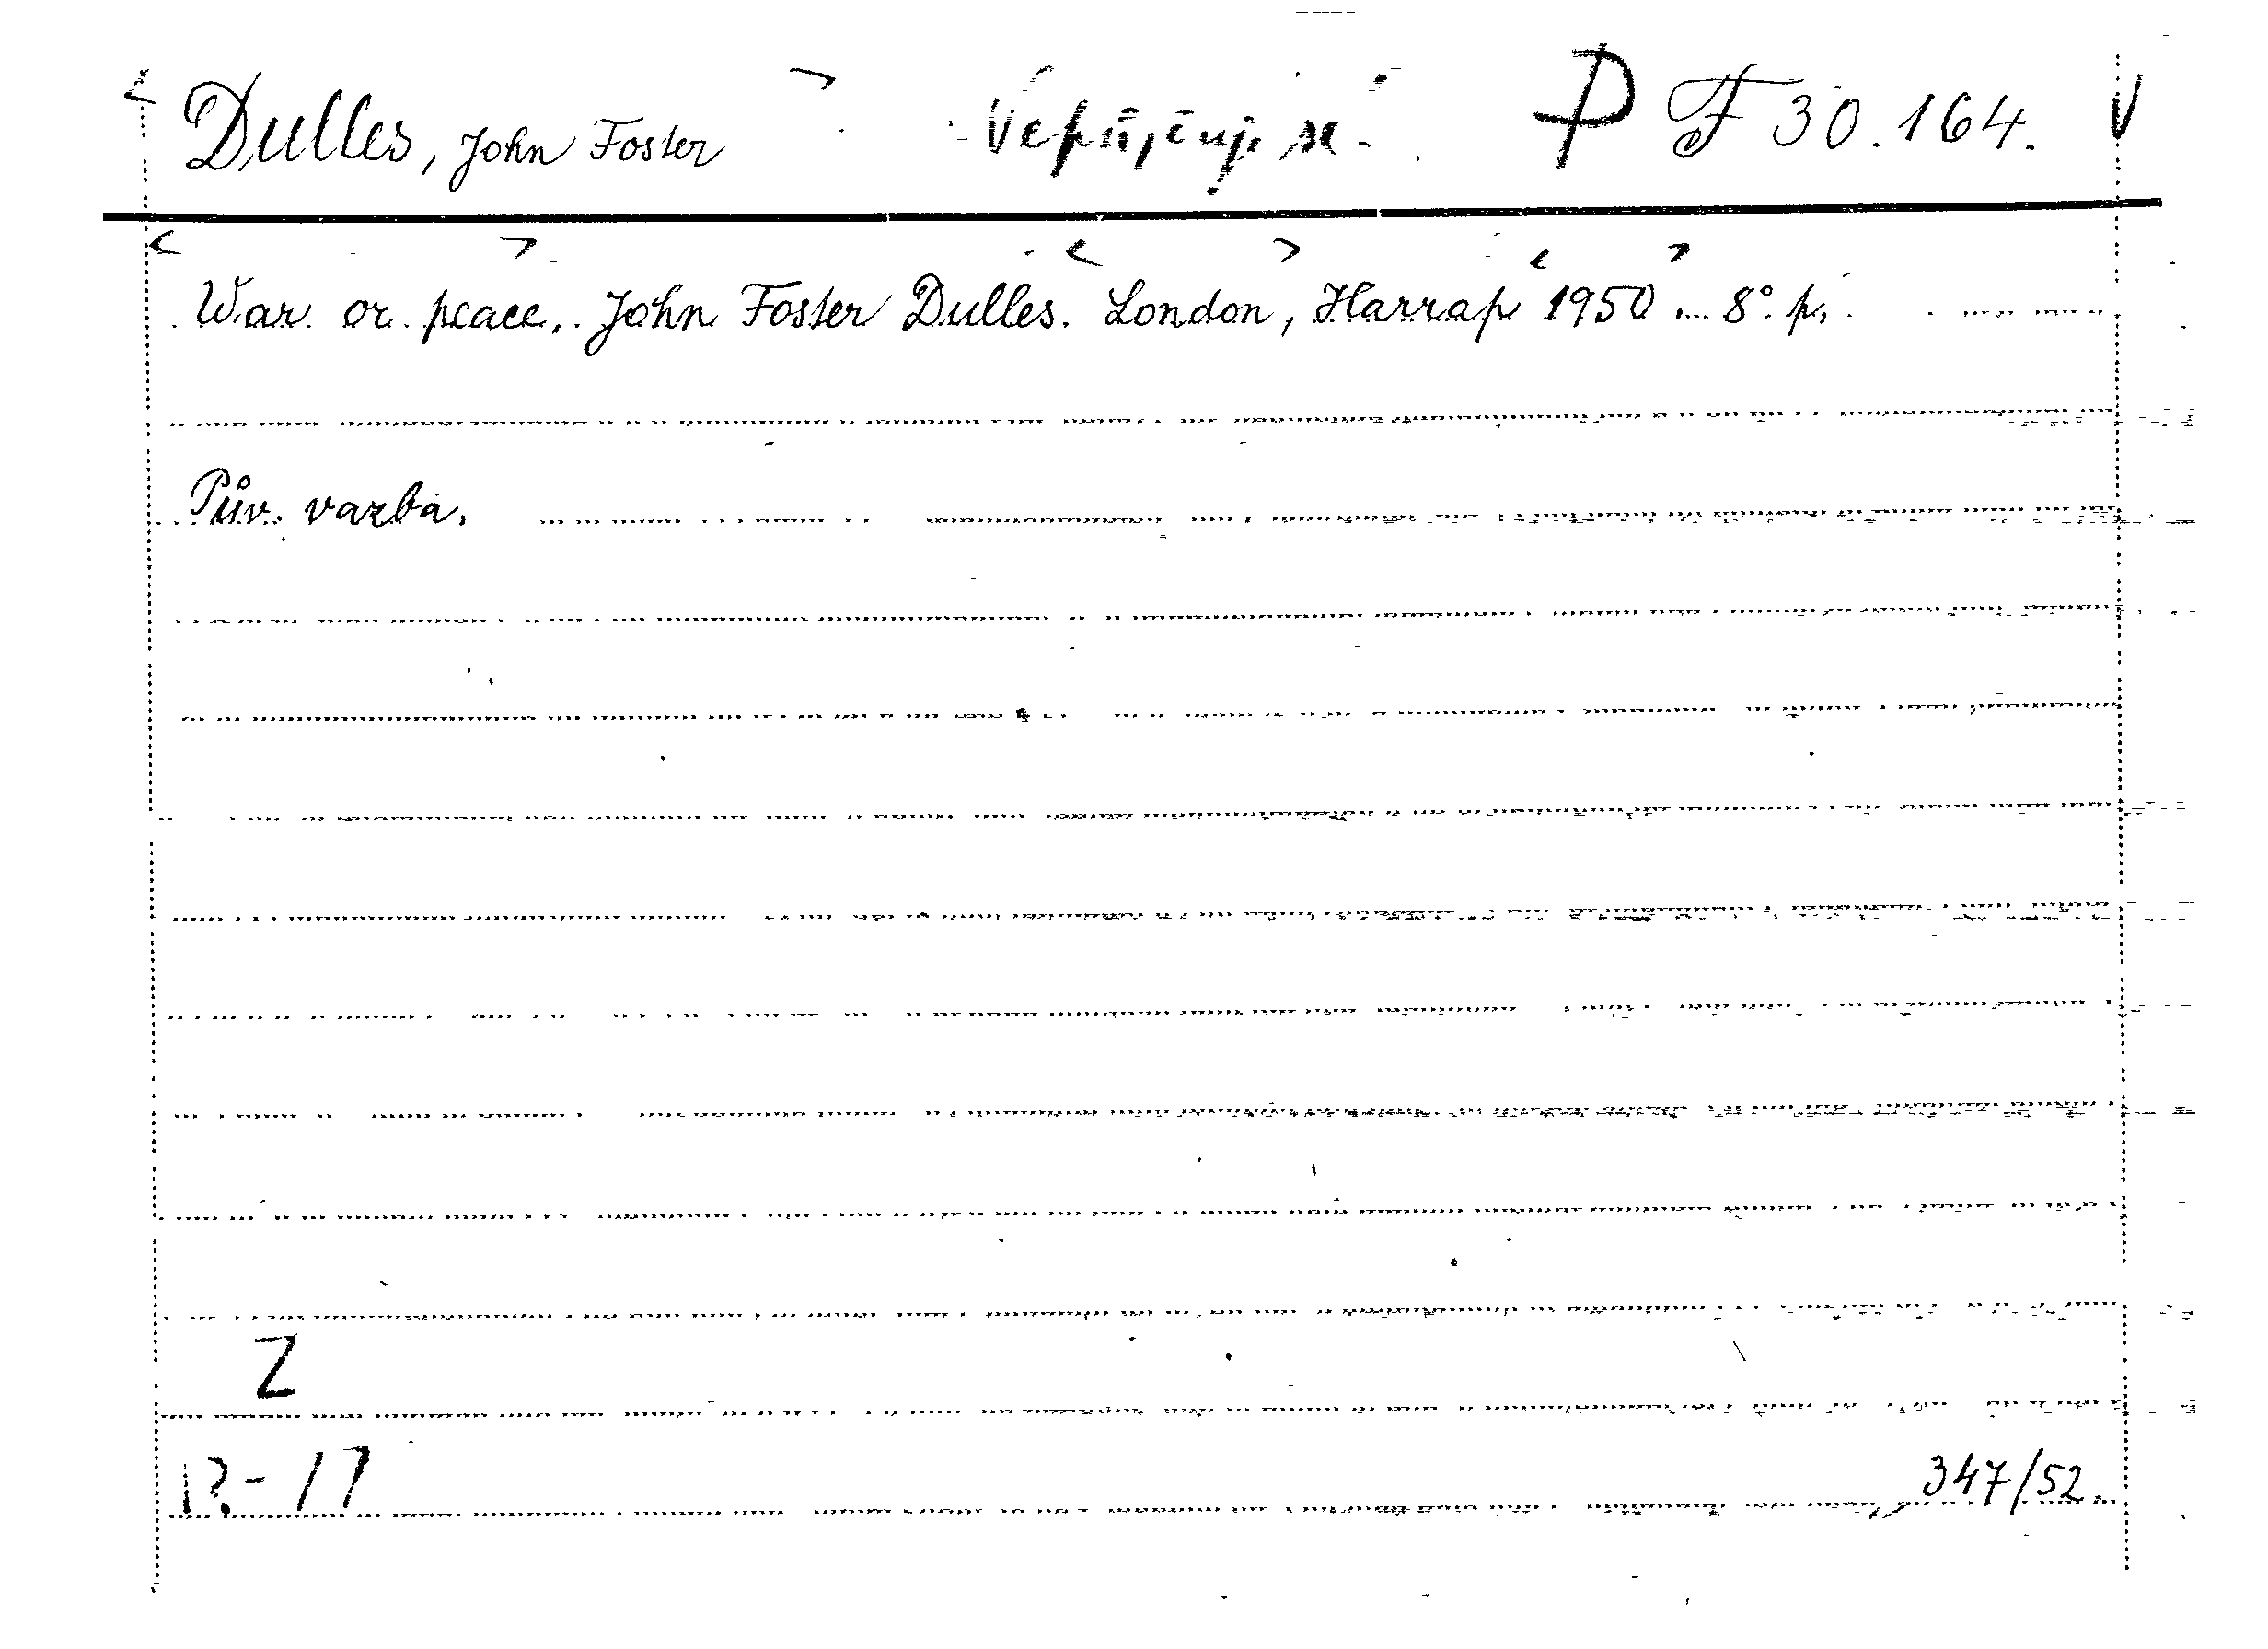 Dulles, John Foster Nepůjčuje se. P F 30.164. V
War or peace. John Foster Dulles. London, Harrap 1950. 8° p.
Pův. vazba.
Z
347/52.